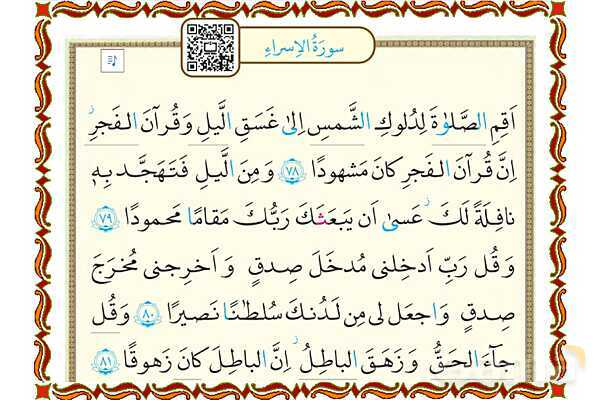 سورَةُ الاِسراءِ
اَقِمِ الصَّلوٰةَ لِدُلوكِ الشَّمسِ اِلىٰ غَسَقِ الَّيلِ وَ قُرآنَ الفَجرِ
اِنَّ قُرآنَ الفَجرِ كانَ مَشهودًا ﴿٧٨﴾ وَ مِنَ الَّيلِ فَتَهَجَّد بِهٖ
نافِلَةً لَكَ عَسىٰ اَن يَبعَثَكَ رَبُّكَ مَقامًا مَحمودًا ﴿٧٩﴾
وَ قُل رَبِّ اَدخِلنى مُدخَلَ صِدقٍ وَ اَخرِجنى مُخرَجَ
صِدقٍ وَ اجعَل لى مِن لَدُنكَ سُلطٰنًا نَصيرًا ﴿٨٠﴾ وَ قُل
جآءَ الحَقُّ وَ زَهَقَ الباطِلُ اِنَّ الباطِلَ كانَ زَهوقًا ﴿٨١﴾